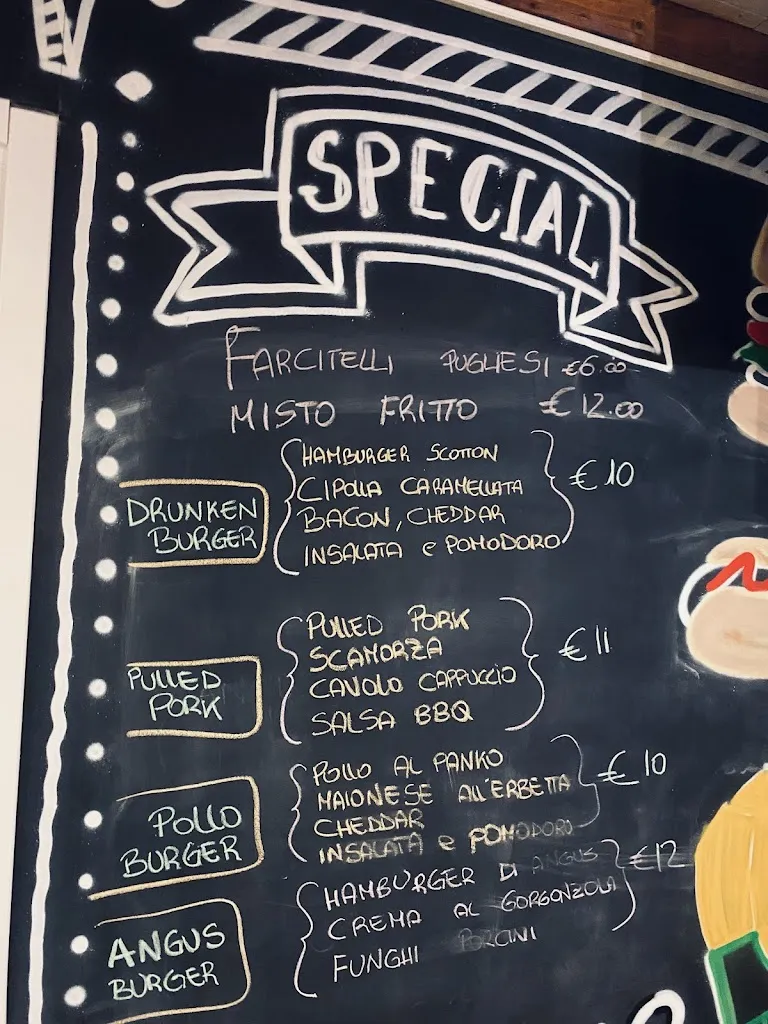 SPECIAL
FARCITELLI PUGLIESI €6.00
MISTO FRITTO €12.00
DRUNKEN
BURGER
HAMBURGER SCOTTON
CIPOLLA CARAMELLATA
BACON, CHEDDAR
INSALATA e POMODORO
€10
PULLED
PORK
PULLED PORK
SCAMORZA
CAVOLO CAPPUCCIO
SALSA BBQ
€11
POLLO
BURGER
POLLO AL PANKO
MAIONESE ALL'ERBETTA
CHEDDAR
INSALATA e POMODORO
€10
ANGUS
BURGER
HAMBURGER DI ANGUS
CREMA AL GORGONZOLA
FUNGHI PORCINI
€12